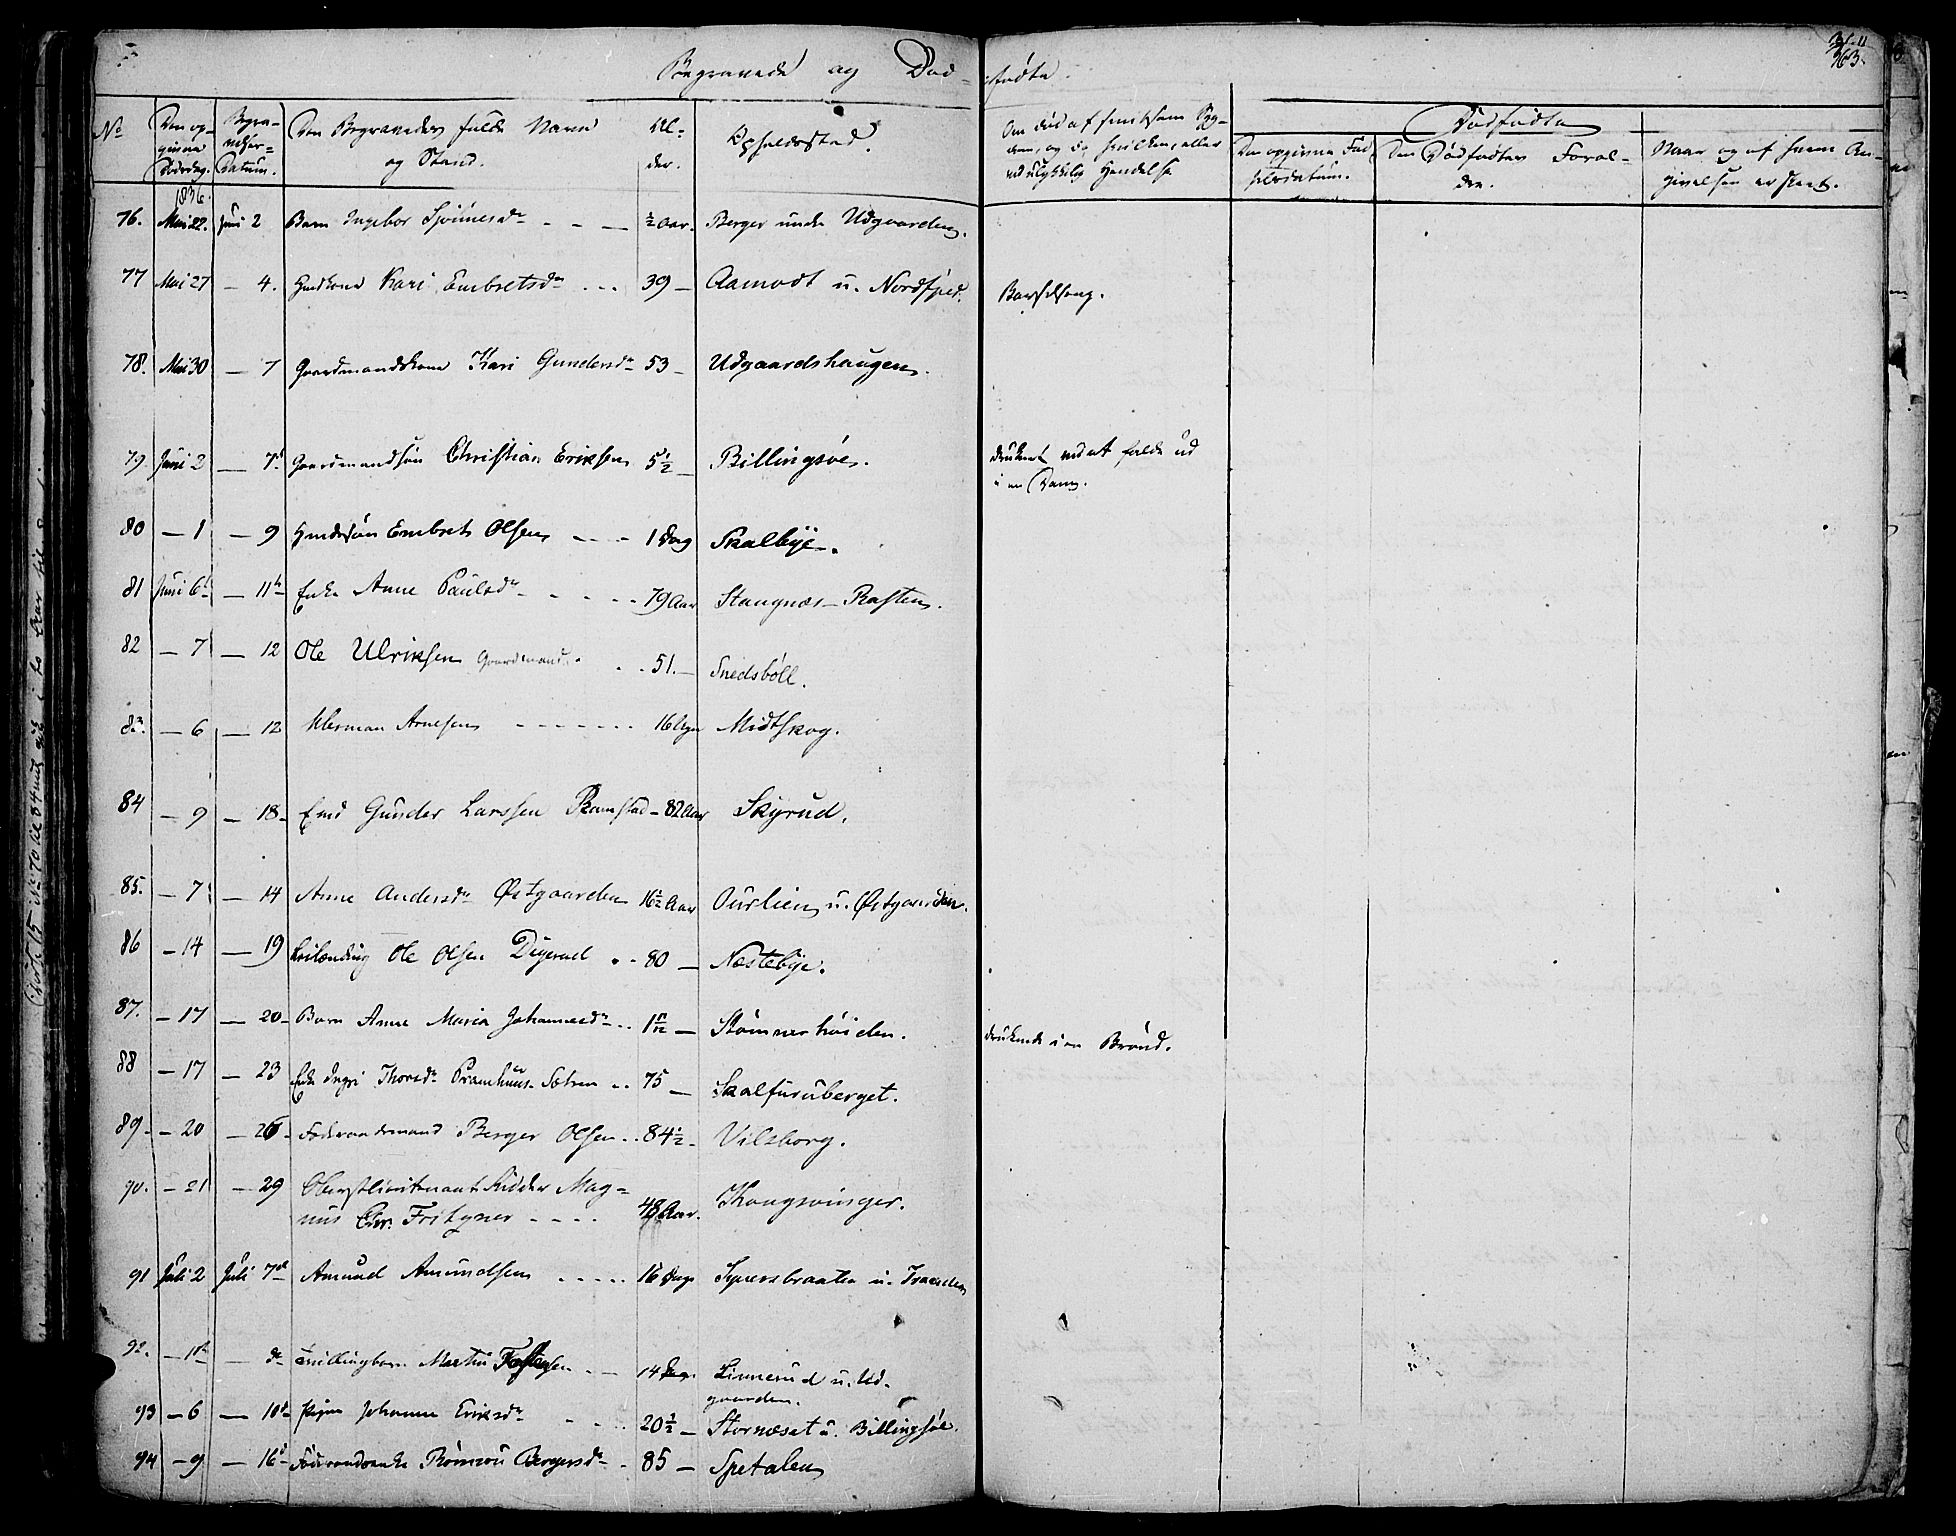 Begravede og Død- fødte.
363.
No
Den op-
givne
Dödsdag.
Begra-
velses-
Datum.
Den Begravedes fulde Navn
og Stand.
Al-
der.
Opholdssted.
Om död af smitsom Syg-
dom, og da hvilken, eller
ved ulykkelig Hendelse
Dødfødte
Den opgivne Föd
selsdatum.
Den Dødfødtes Foræl-
dre.
Naar og af hvem An-
givelsen er skeet.
1836.
76. Mai 22. Juni 2 Barn Ingebor Tjöstelsdr ½ Aar. Berger under Udgaarden.
77 Mai 27 — 4. Huuskone Kari Embretsdr 39 — Aamodt u. Nordhued. Barselseng.
78. Mai 30 — 7 Gaardmandskone Kari Gundersdr 53 — Udgaardshaugen.
79 Juni 2 — 7d Gaardmandsön Christian Eriksen 5½ — Billingsöe. druknet ved at falde ud
i en Dam.
80 — 1 — 9 Embret Olsen 1 Dag Skalbye.
81 Juni 6t — 11te Enke Anne Paulsdr 79 Aar Stangnæs-Rasten.
82 — 7 — 12 Ole Ulriksen Gaardmand. 51. — Snedsböll.
83. — 6 — 12 Herman Arnesen 16 Uger Midtskog.
84 — 9 — 18 — Gunder Larssen Ramstad — 82 Aar Skyrud.
85. — 7 — 14 Anne Andersdr Østgaarden 16½ Aar Ourlien u. Østgaarden.
86 — 14 — 19 Ole Olsen Digerud 80 — Næstebye.
87. — 17 — 20 — Barn Anne Maria Johannesdr 1 — Stömnerhöiden. druknede i en Brönd.
88 — 17 — 23 Enke Ingri Thorsdr Pramhuus-Sætren 75 — Skalfuruberget.
89. — 20 — 26 — Föderaadsmand Berger Olsen 84½ — Vilsborg.
90. — 21 — 29 Oberstlieutenant Ridder Mag-
nus Chr. Fritzner 48 Aar. Kongsvinger.
91 Juli 2 Juli 7de Amund Amundsen 16 Dage u. Tranden
92. — — do Tvillingbarn Martin 14 Dage Linnerud u. Ud-
gaarden.
93 — 6 — 10de Pigen Johanne Eriksdr 20½ — Stornæset u. Billingsöe.
94 — 9 — 16 — Föderaadsenke Rönnou Bergersdr 85 — Spetalen